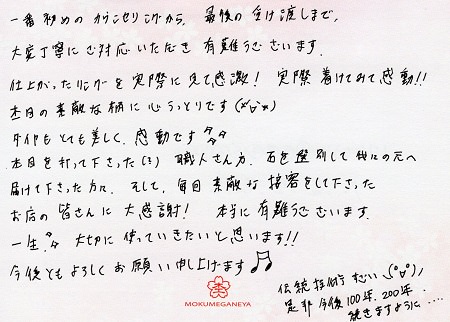 一番初めのカウンセリングから、最後の受け渡しまで、
大変丁寧にご対応いただき有難うございます。
仕上がったリングを実際に見て感激！実際着けてみて感動!!
木目の素敵な柄に心うっとりです(*°∀°*)
ダイヤもとても美しく、感動です
木目を打って下さった(ミ)職人さん方、石を選別して我々の元へ
届けて下さった方々、そして、毎回素敵な接客をして下さった
お店の皆さんに大感謝！本当に有難うございます。
一生大切に使っていきたいと思います!!
今後ともよろしくお願い申し上げます♫
伝統技術すごいヽ(°∀°)ノ
是非今後100年、200年
続きますように....
MOKUMEGANEYA